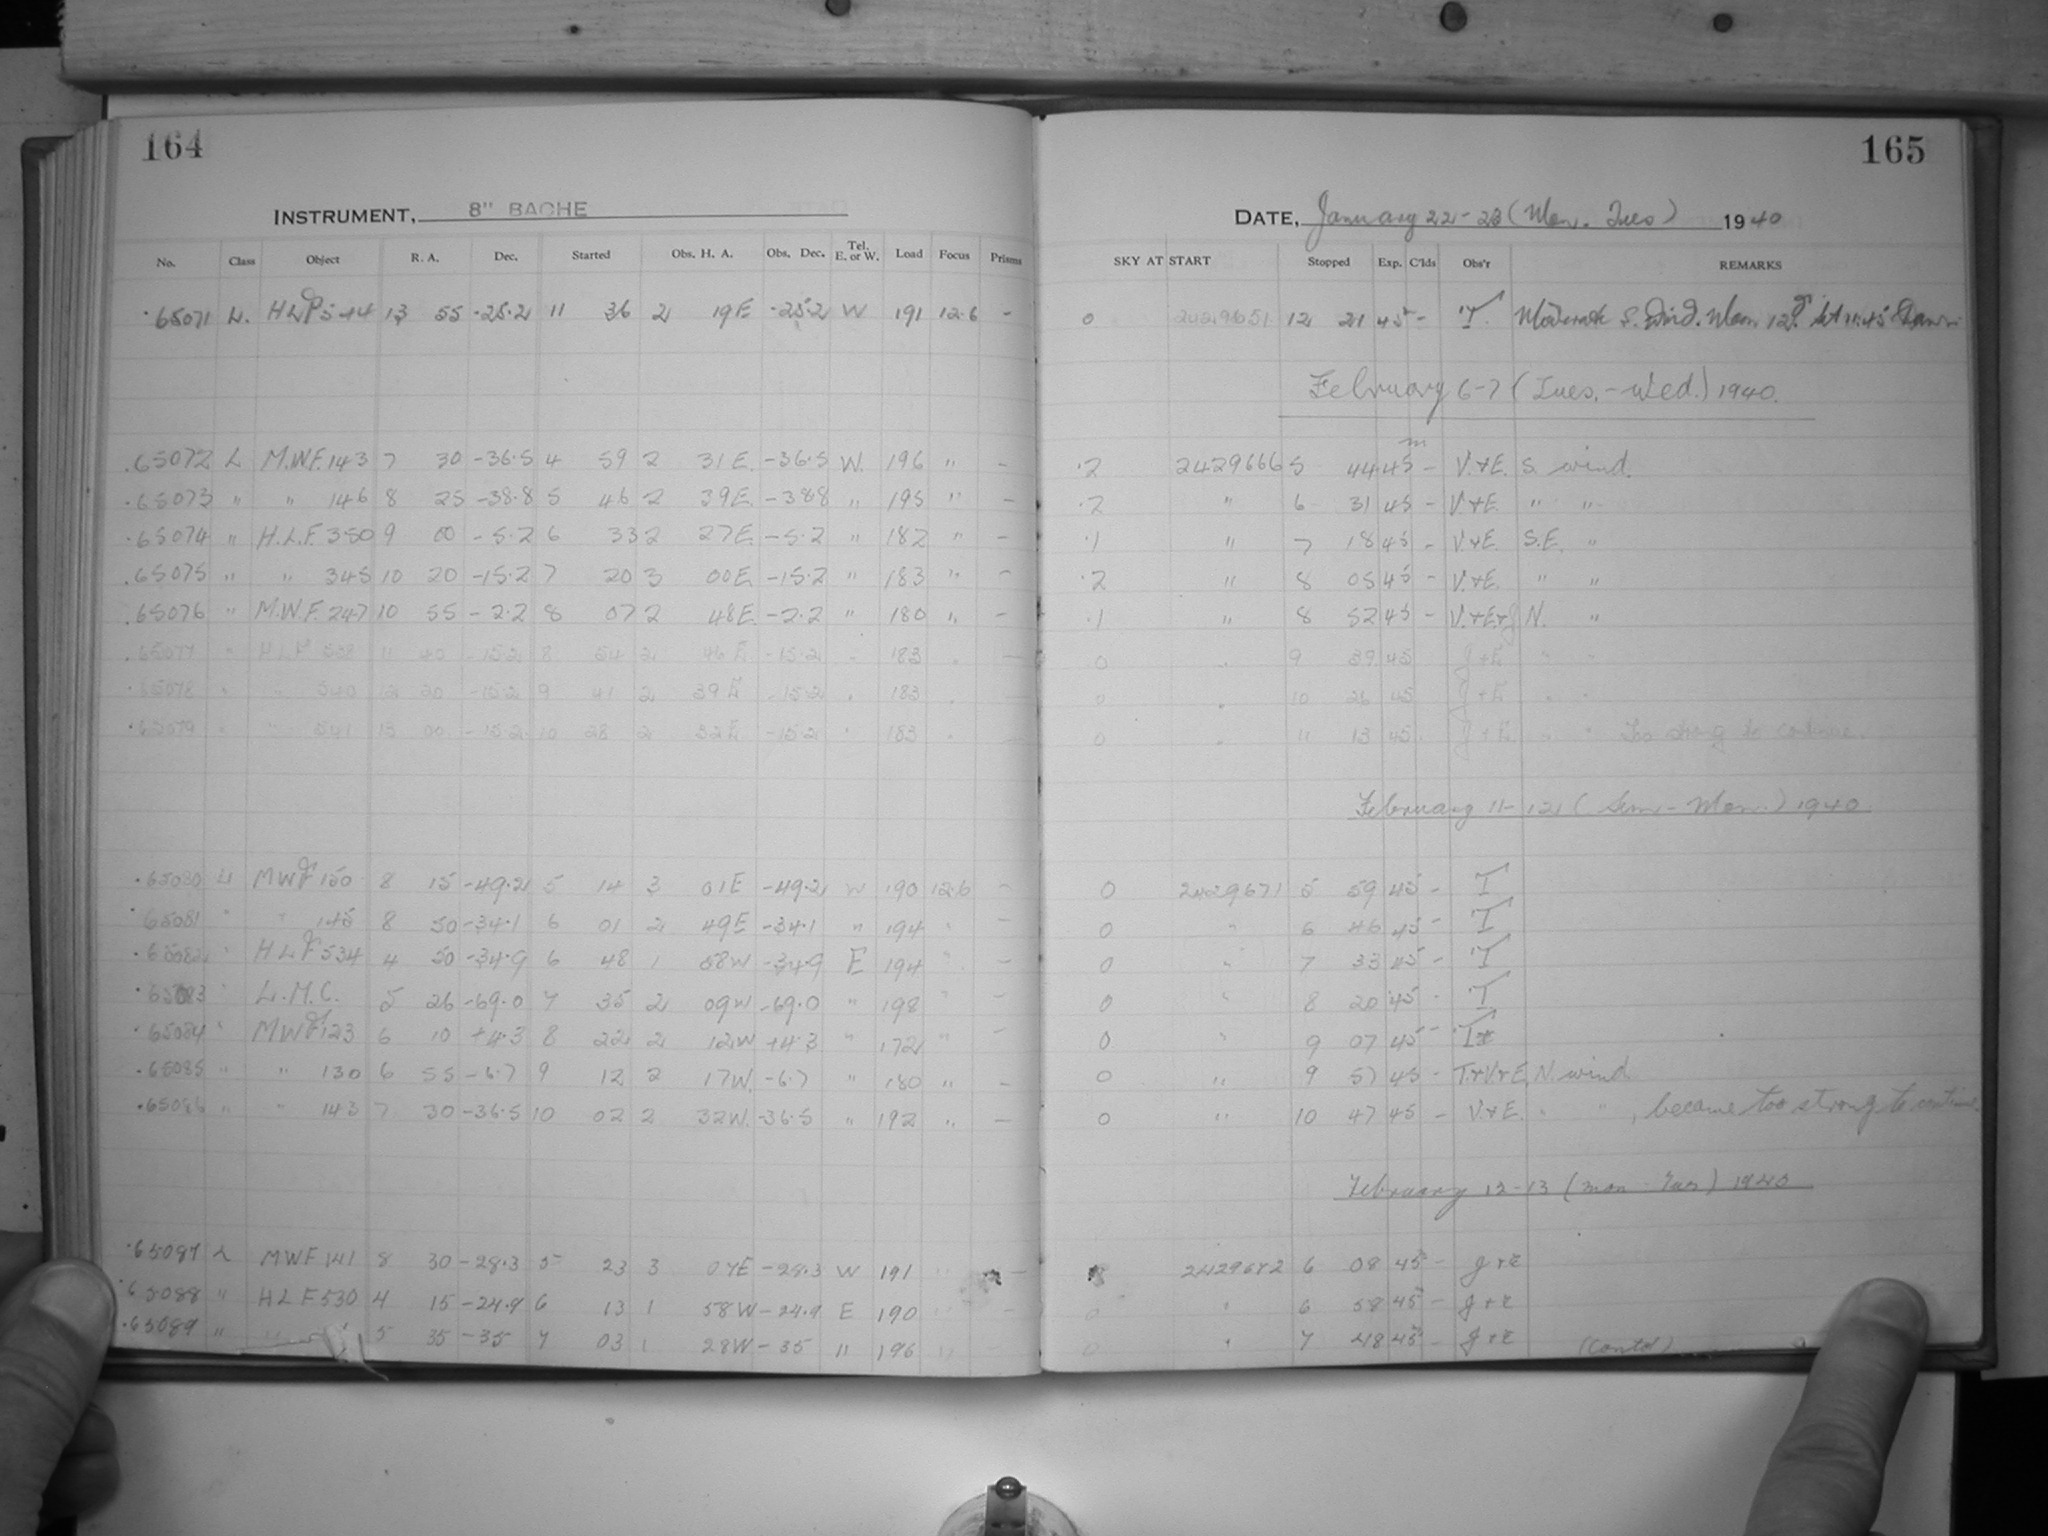 164
165
INSTRUMENT, 8" BACHE
DATE, January 22-23 (Mon. Tues) 1940
No. Class Object R. A. Dec. Started Obs. H. A. Obs. Dec. Tel. E. or W. Load Focus Prisms SKY AT START Stopped Exp. C'lds Obs'r REMARKS
65071 L. 13 55 -25.2 11 36 2 19E -25.2 W 191 12.6 - 0 2429651 12 21 45 - T. Moderate S. Wind. Moon at 11:45
February 6-7 (Tues.-Wed.) 1940.
.65072 L M.W.F. 143 7 30 -36.5 4 59 2 31E. -36.5 W. 196 " - .2 2429666 5 44 45m - V.+E. S. wind.
.65073 " " 146 8 25 -38.8 5 46 2 39E. -38.8 " 195 " - .2 " 6 31 45 - V.+E. " "
.65074 " H.L.F. 350 9 00 -5.2 6 33 2 27E. -5.2 " 182 " - .1 " 7 18 45 - V.+E. S.E. "
.65075 " " 345 10 20 -15.2 7 20 3 00E. -15.2 " 183 " - .2 " 8 05 45 - V.+E. " "
.65076 " M.W.F. 247 10 55 -2.2 8 07 2 48E. -2.2 " 180 " - .1 " 8 52 45 - V.+E+J N. "
.65077 " HLF 11 40 -15.2 8 54 2 46E. -15.2 " 183 " - 0 " 9 39 45 J+E " "
.65078 " " 540 12 20 -15.2 9 41 2 39E -15.2 " 183 " - 0 " 10 26 45 J+E " "
.65079 " " 541 13 00 -15.2 10 28 2 32E -15.2 " 183 " - 0 " 11 13 45 J+E. " " Too strong to continue.
February 11-12 (Sun-Mon.) 1940
.65080 L MWF 150 8 15 -49.2 5 14 3 01E -49.2 W 190 12.6 - 0 2429671 5 59 45 - T
65081 " " 145 8 50 -34.1 6 01 2 49E -34.1 " 194 " - 0 " 6 46 45 - T
.65082 " HLF 534 4 50 -34.9 6 48 1 08W -34.9 E 194 " - 0 " 7 33 45 - T
.65083 " L.M.C. 5 26 -69.0 7 35 2 09W -69.0 " 198 " - 0 " 8 20 45 - T
.65084 " MWF 123 6 10 +4.3 8 22 2 12W +4.3 " 172 " - 0 " 9 07 45 - T
.65085 " " 130 6 55 -6.7 9 12 2 17W. -6.7 " 180 " - 0 " 9 57 45 - T+V+E N. wind
.65086 " " 143 7 30 -36.5 10 02 2 32W. -36.5 " 192 " - 0 " 10 47 45 - V.+E. " " , became too strong to continue.
February 12-13 (Mon-Tues) 1940
.65087 L MWF 141 8 30 -28.3 5 23 3 07E -28.3 W 191 " - 2429672 6 08 45 - J+E
.65088 " HLF 530 4 15 -24.9 6 13 1 58W -24.9 E 190 " 0 " 6 58 45 - J+E
.65089 " 5 35 -35 7 03 1 28W -35 " 196 " 0 " 7 48 45 - J+E (Contd)